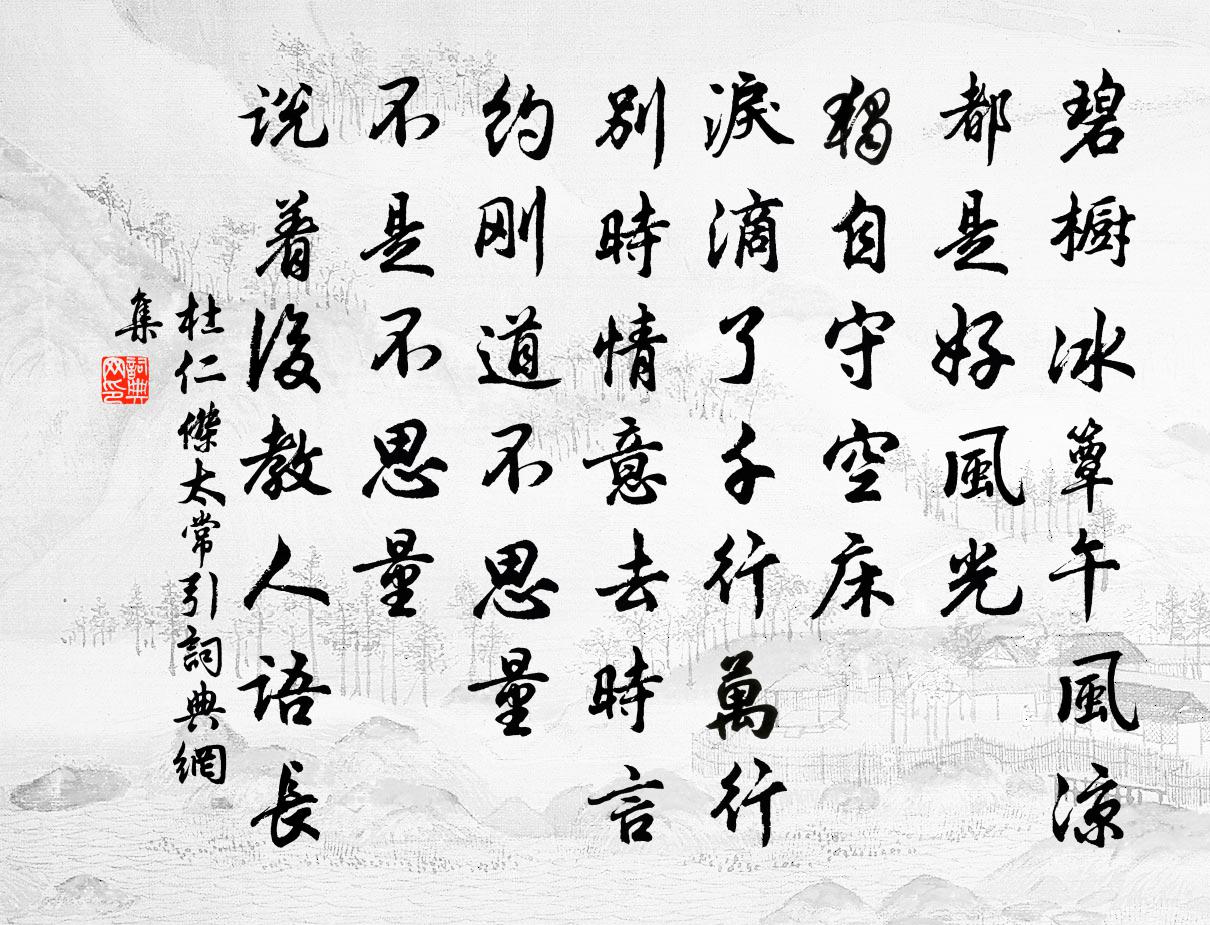 碧櫥冰簟午風涼
都是好風光
獨自守空床
淚滴了千行萬行
別時情意去時言
約刚道不思量
不是不思量
说着後教人语長
杜仁傑太常引詞典網
集
詞典网印